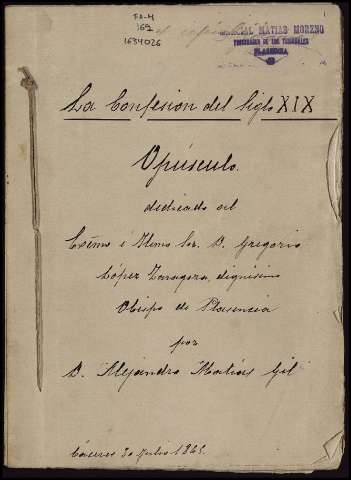 FA-M
169
1634026
MATIAS MORENO
PROCURADOR DE LOS TRIBUNALES
PLASENCIA
La Confesion del Siglo XIX
Opúsculo
dedicado al
Excmo é Ilmo Sr. D. Gregorio
López Zaragoza, dignísimo
Obispo de Plasencia
por
D. Alejandro Matías Gil
Cáceres 30 Julio 1865.